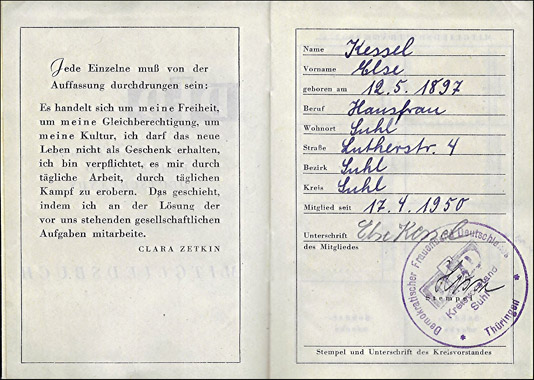 Jede Einzelne muß von der
Auffassung durchdrungen sein:
Es handelt sich um meine Freiheit,
um meine Gleichberechtigung, um
meine Kultur, ich darf das neue
Leben nicht als Geschenk erhalten,
ich bin verpflichtet, es mir durch
tägliche Arbeit, durch täglichen
Kampf zu erobern. Das geschieht,
indem ich an der Lösung der
vor uns stehenden gesellschaftlichen
Aufgaben mitarbeite.
CLARA ZETKIN
MITGLIEDSBUCH
Name Kessel
Vorname Else
geboren am 12.5.1897
Beruf Hausfrau
Wohnort Suhl
Straße Lutherstr. 4
Bezirk Suhl
Kreis Suhl
Mitglied seit 17.4.1950
Unterschrift Else Kessel
des Mitgliedes
Demokratischer Frauenbund Deutschlands
Kreisvorstand
Suhl
* Thüringen *
Stempel
Stempel und Unterschrift des Kreisvorstandes